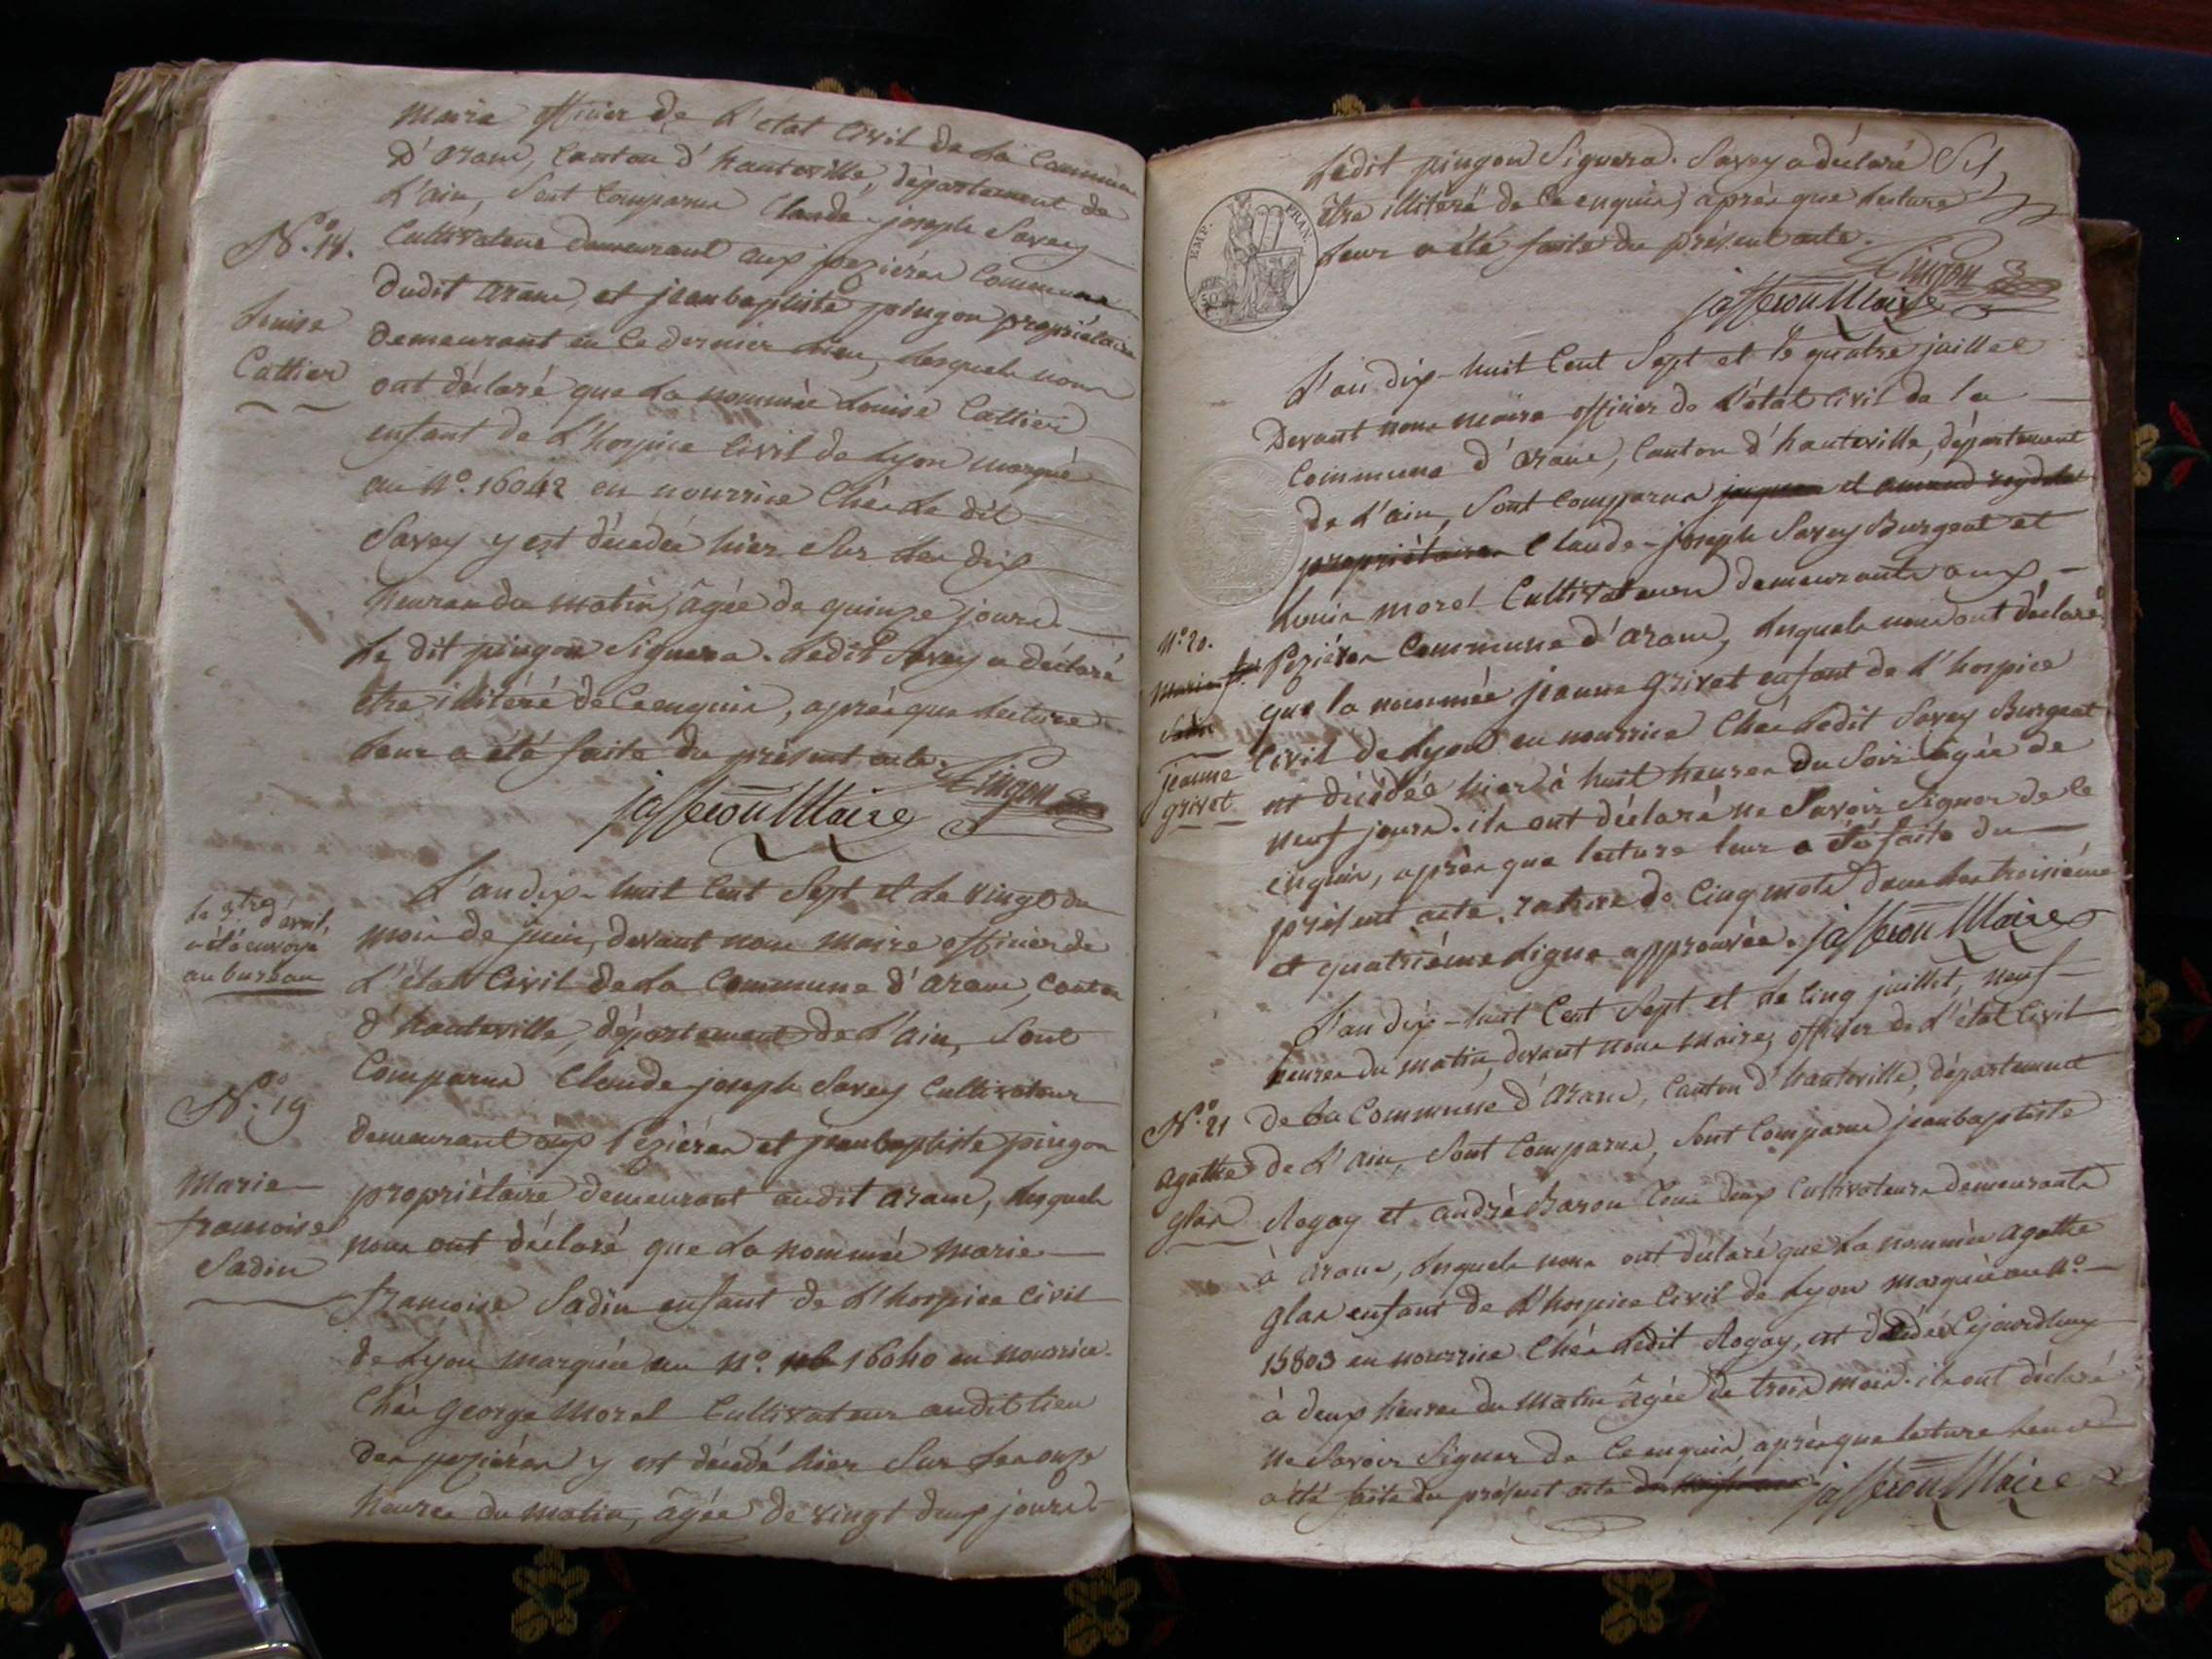 maire officier de L'état Civil de La Commune
d'arane, Canton d'hauteville, département de
L'ain, Sont Comparus Claude-joseph Savey
N.o 18.
Cultivateur demeurant aux pezières Commune
dudit arane, et jeanbaptiste pingon propriétaire
Louise
Cattier
demeurant en Ce dernier Lieu, Lesquels nous
ont déclaré que La nommée Louise Cattier
enfant de L'hospice Civil de Lyon marqué
au N.o 16042 en nourrice Chés Le dit
Savey y est décédée hier Sur Les dix
heures du matin, âgée de quinze jours.
Le dit pingon Signera. Ledit Savey a déclaré
être illitéré de Ce enquis, après que Lecture
Leur a été faite du présent acte.
Pingon
jasseron Maire
L'an dix-huit Cent Sept et Le vingt du
Le
d'avril,
a été envoyé
au bureau
mois de juin, devant nous maire officier de
L'état Civil de La Commune d'arane, Canton
d'hauteville, département de L'ain, Sont
Comparus Claude joseph Savey Cultivateur
N.o 19
demeurant aux Pezières et jeanbaptiste pingon
Marie
francoise
Sadin
propriétaire demeurant audit arane, Lesquels
nous ont déclaré que La nommée marie
francoise Sadin enfant de L'hospice Civil
de Lyon marquée au N.o 16040 en nourrice
Chés George Morel Cultivateur audit lieu
des pezières y est décédé hier Sur Les onze
heures du matin, âgée de vingt deux jours.
Ledit pingon Signera. Savey a déclaré
être illitéré de Ce enquis, après que Lecture
Leur a été faite du présent acte.
EMP. FRAN.
Pingon
jasseron Maire
L'an dix-huit Cent Sept et le quatre juillet
Devant nous maire officier de L'état Civil de la
Commune d'arane, Canton d'hauteville, département
de L'ain, Sont Comparus jacques et amand
propriétaires Claude-joseph Savey Burgeat et
Louis morel Cultivateurs demeurants aux
N.o 20.
Marie fr.
Sadin
jeanne
grivet
Pezières Commune d'arane, Lesquels nous ont déclaré
que la nommée jeanne grivet enfant de L'hospice
Civil de Lyon en nourrice Chés Ledit Savey Burgeat
est décédée hier à huit heures du Soir âgée de
neuf jours. ils ont déclaré ne Savoir Signer de Ce
enquis, après que lecture leur a été faite du
présent acte. rature de Cinq mots dans les troisième
et quatrième Ligne approuvée. jasseron Maire
L'an dix-huit Cent Sept et Le Cinq juillet, neuf
heures du matin, devant nous maire, officier de L'état Civil
N.o 21
agathe
glas
de La Commune d'arane, Canton d'hauteville, département
de L'ain, Sont Comparus, Sont Comparus jeanbaptiste
Rogay et andré Baron tous deux Cultivateurs demeurants
à arane, Lesquels nous ont déclaré que La nommée agathe
glas enfant de L'hospice Civil de Lyon marquée au N.o
15803 en nourrice Chés Ledit Rogay, est décédée Cejourdhuy
à deux heures du matin âgée de trois mois. ils ont déclaré
ne Savoir Signer de Ce enquis, après que lecture Leur
a été faite du présent acte jasseron Maire